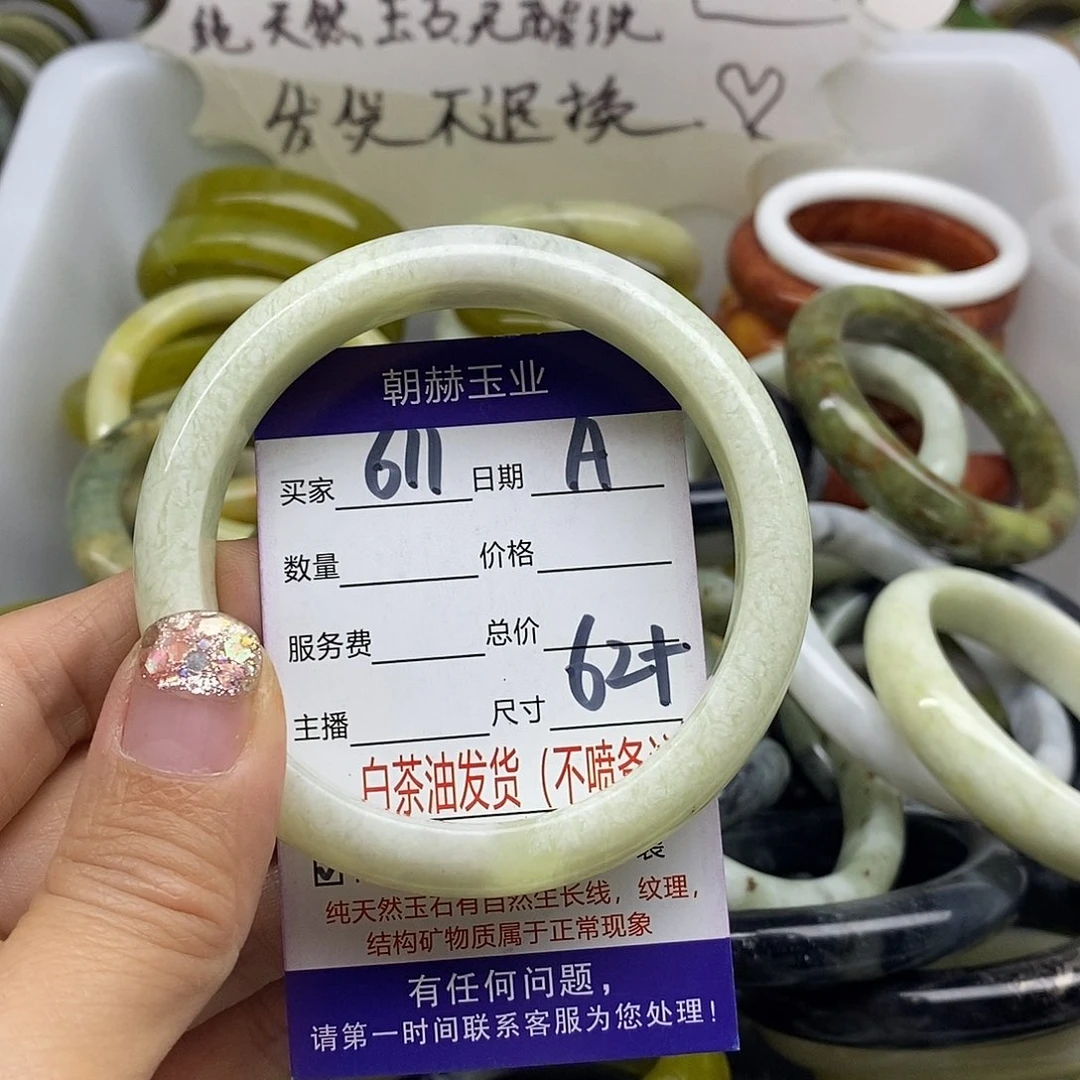 纯天然玉石无酸洗
发货不退换
朝赫玉业
买家 611 日期 A
数量 价格
服务费 总价
主播 尺寸 62+
白茶油发货(不喷
装
纯天然玉石有自然生长线，纹理，
结构矿物质属于正常现象
有任何问题，
请第一时间联系客服为您处理！